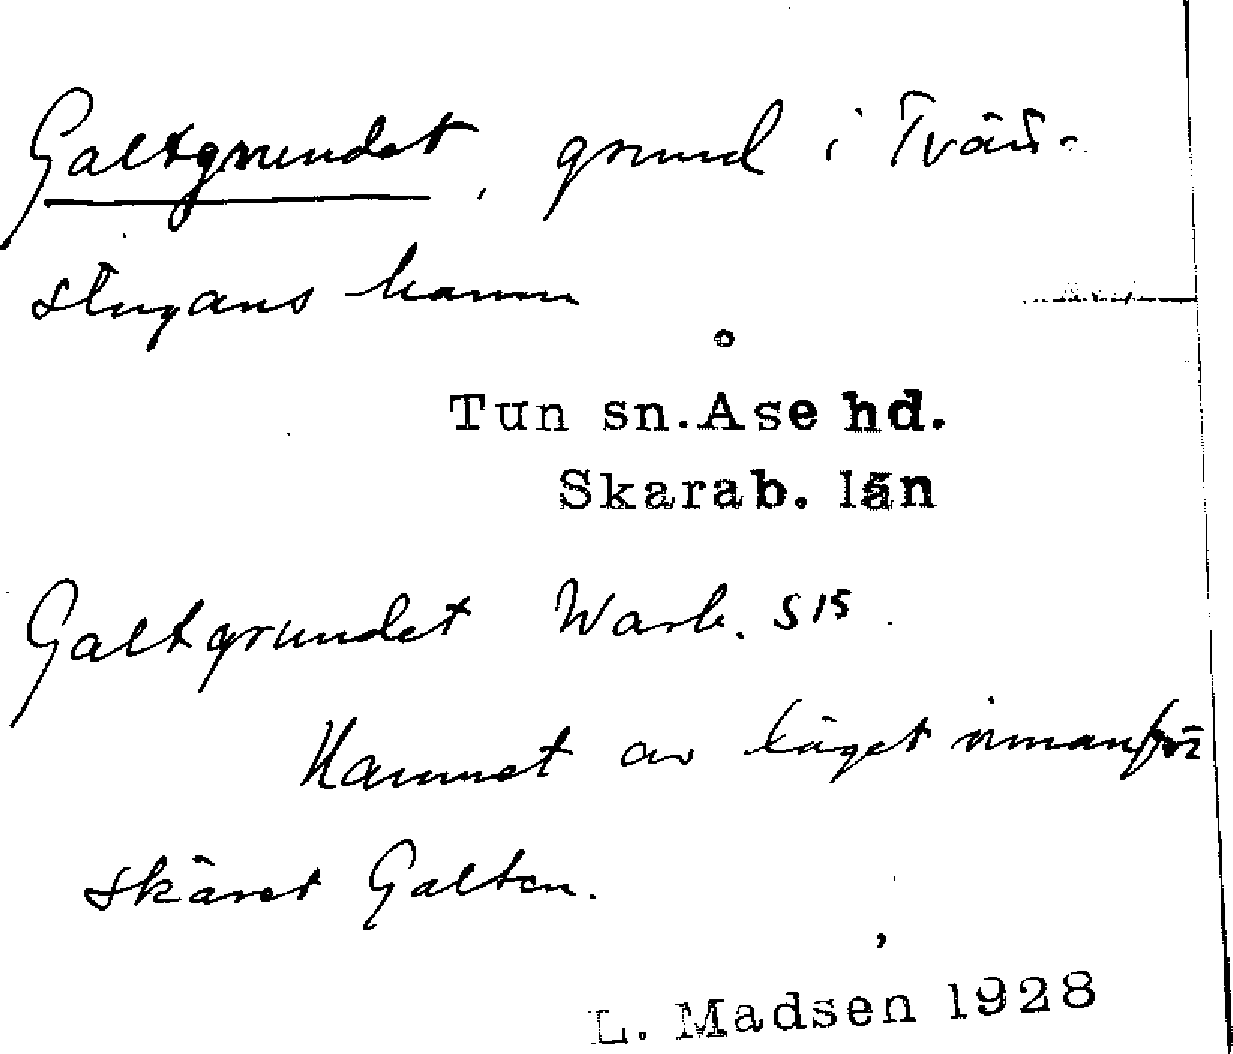 Galtgrundet, grund i Tvär-
stugans hamn
Tun sn. Åse hd.
Skarab. län
Galtgrundet Warb. S 15.
Namnet av läget innanför
skäret Galten.
L. Madsen 1928